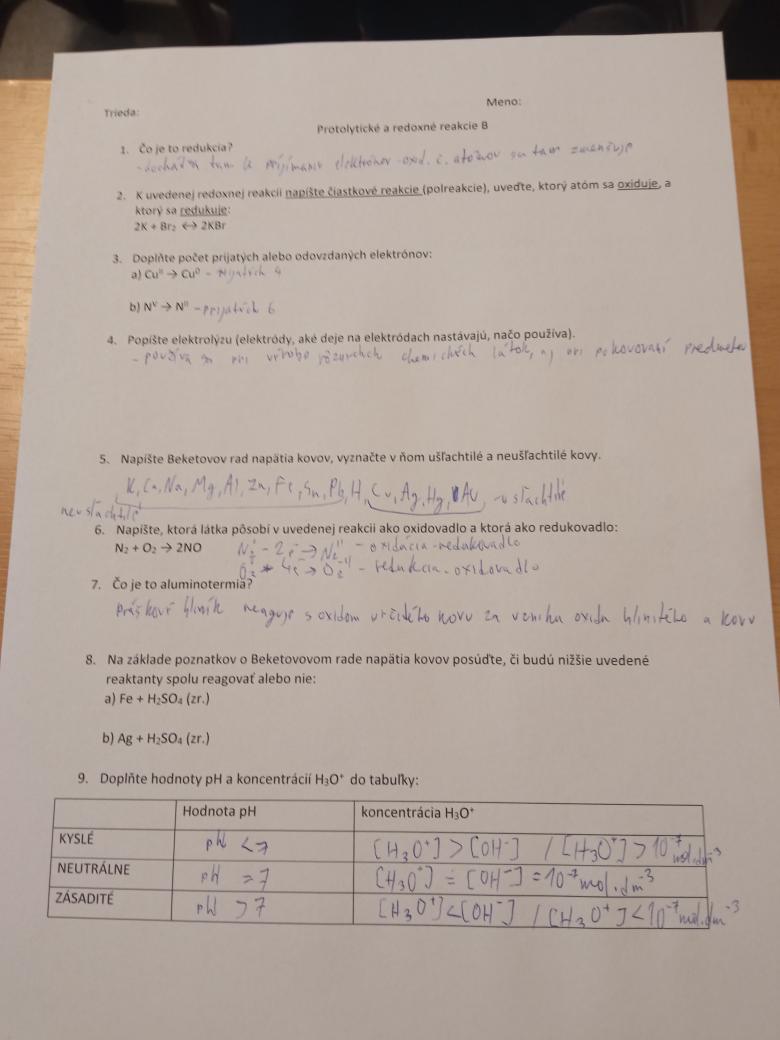 Trieda:
Meno:
Protolytické a redoxné reakcie B
1. Čo je to redukcia?
- dochádza tam k prijímaniu elektrónov - oxid. č. atómov sa tam zmenšuje
2. K uvedenej redoxnej reakcii napíšte čiastkové reakcie (polreakcie), uveďte, ktorý atóm sa oxiduje, a
ktorý sa redukuje:
2K + Br₂ ↔ 2KBr
3. Doplňte počet prijatých alebo odovzdaných elektrónov:
a) Cuᴵᴵ → Cu⁰ - prijatých 4
b) Nⱽ → Nᴵᴵ - prijatých 6
4. Popíšte elektrolýzu (elektródy, aké deje na elektródach nastávajú, načo používa).
- používa sa pri výrobe rôznych chemických látok, aj pri pokovovaní predmetov
5. Napíšte Beketovov rad napätia kovov, vyznačte v ňom ušľachtilé a neušľachtilé kovy.
K, Ca, Na, Mg, Al, Zn, Fe, Sn, Pb, H, Cu, Ag, Hg, Au, - ušlachtilé
neušlachtilé
6. Napíšte, ktorá látka pôsobí v uvedenej reakcii ako oxidovadlo a ktorá ako redukovadlo:
N₂ + O₂ → 2NO
- oxidácia - redukovadlo
- redukcia - oxidovadlo
7. Čo je to aluminotermia?
práškový hliník reaguje s oxidom určitého kovu za vzniku oxidu hlinitého a kovu
8. Na základe poznatkov o Beketovovom rade napätia kovov posúďte, či budú nižšie uvedené
reaktanty spolu reagovať alebo nie:
a) Fe + H₂SO₄ (zr.)
b) Ag + H₂SO₄ (zr.)
9. Doplňte hodnoty pH a koncentrácií H₃O⁺ do tabuľky:
Hodnota pH koncentrácia H₃O⁺
KYSLÉ pH < 7 [H₃O⁺] > [OH⁻] / [H₃O⁺] > 10⁻⁷ mol.dm⁻³
NEUTRÁLNE pH = 7 [H₃O⁺] = [OH⁻] = 10⁻⁷ mol.dm⁻³
ZÁSADITÉ pH > 7 [H₃O⁺] < [OH⁻] / [H₃O⁺] < 10⁻⁷ mol.dm⁻³